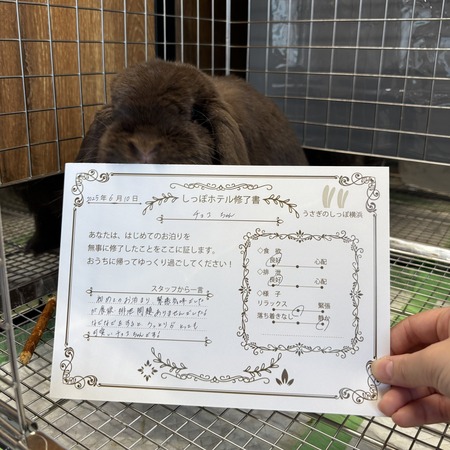 2025年6月10日
しっぽホテル修了書
チョコ ちゃん
うさぎのしっぽ横浜
あなたは、はじめてのお泊りを
無事に修了したことをここに証します。
おうちに帰ってゆっくり過ごしてください！
スタッフから一言
初めてのお泊まり、緊張気味でした
が食欲・排泄 問題ありませんでした!
なでなですると、ウットリが とっても
可愛いチョコちゃんでした
◇食 欲
良好 心配
◇排 泄
良好 心配
◇様 子
リラックス 緊張
落ち着きなし 静か